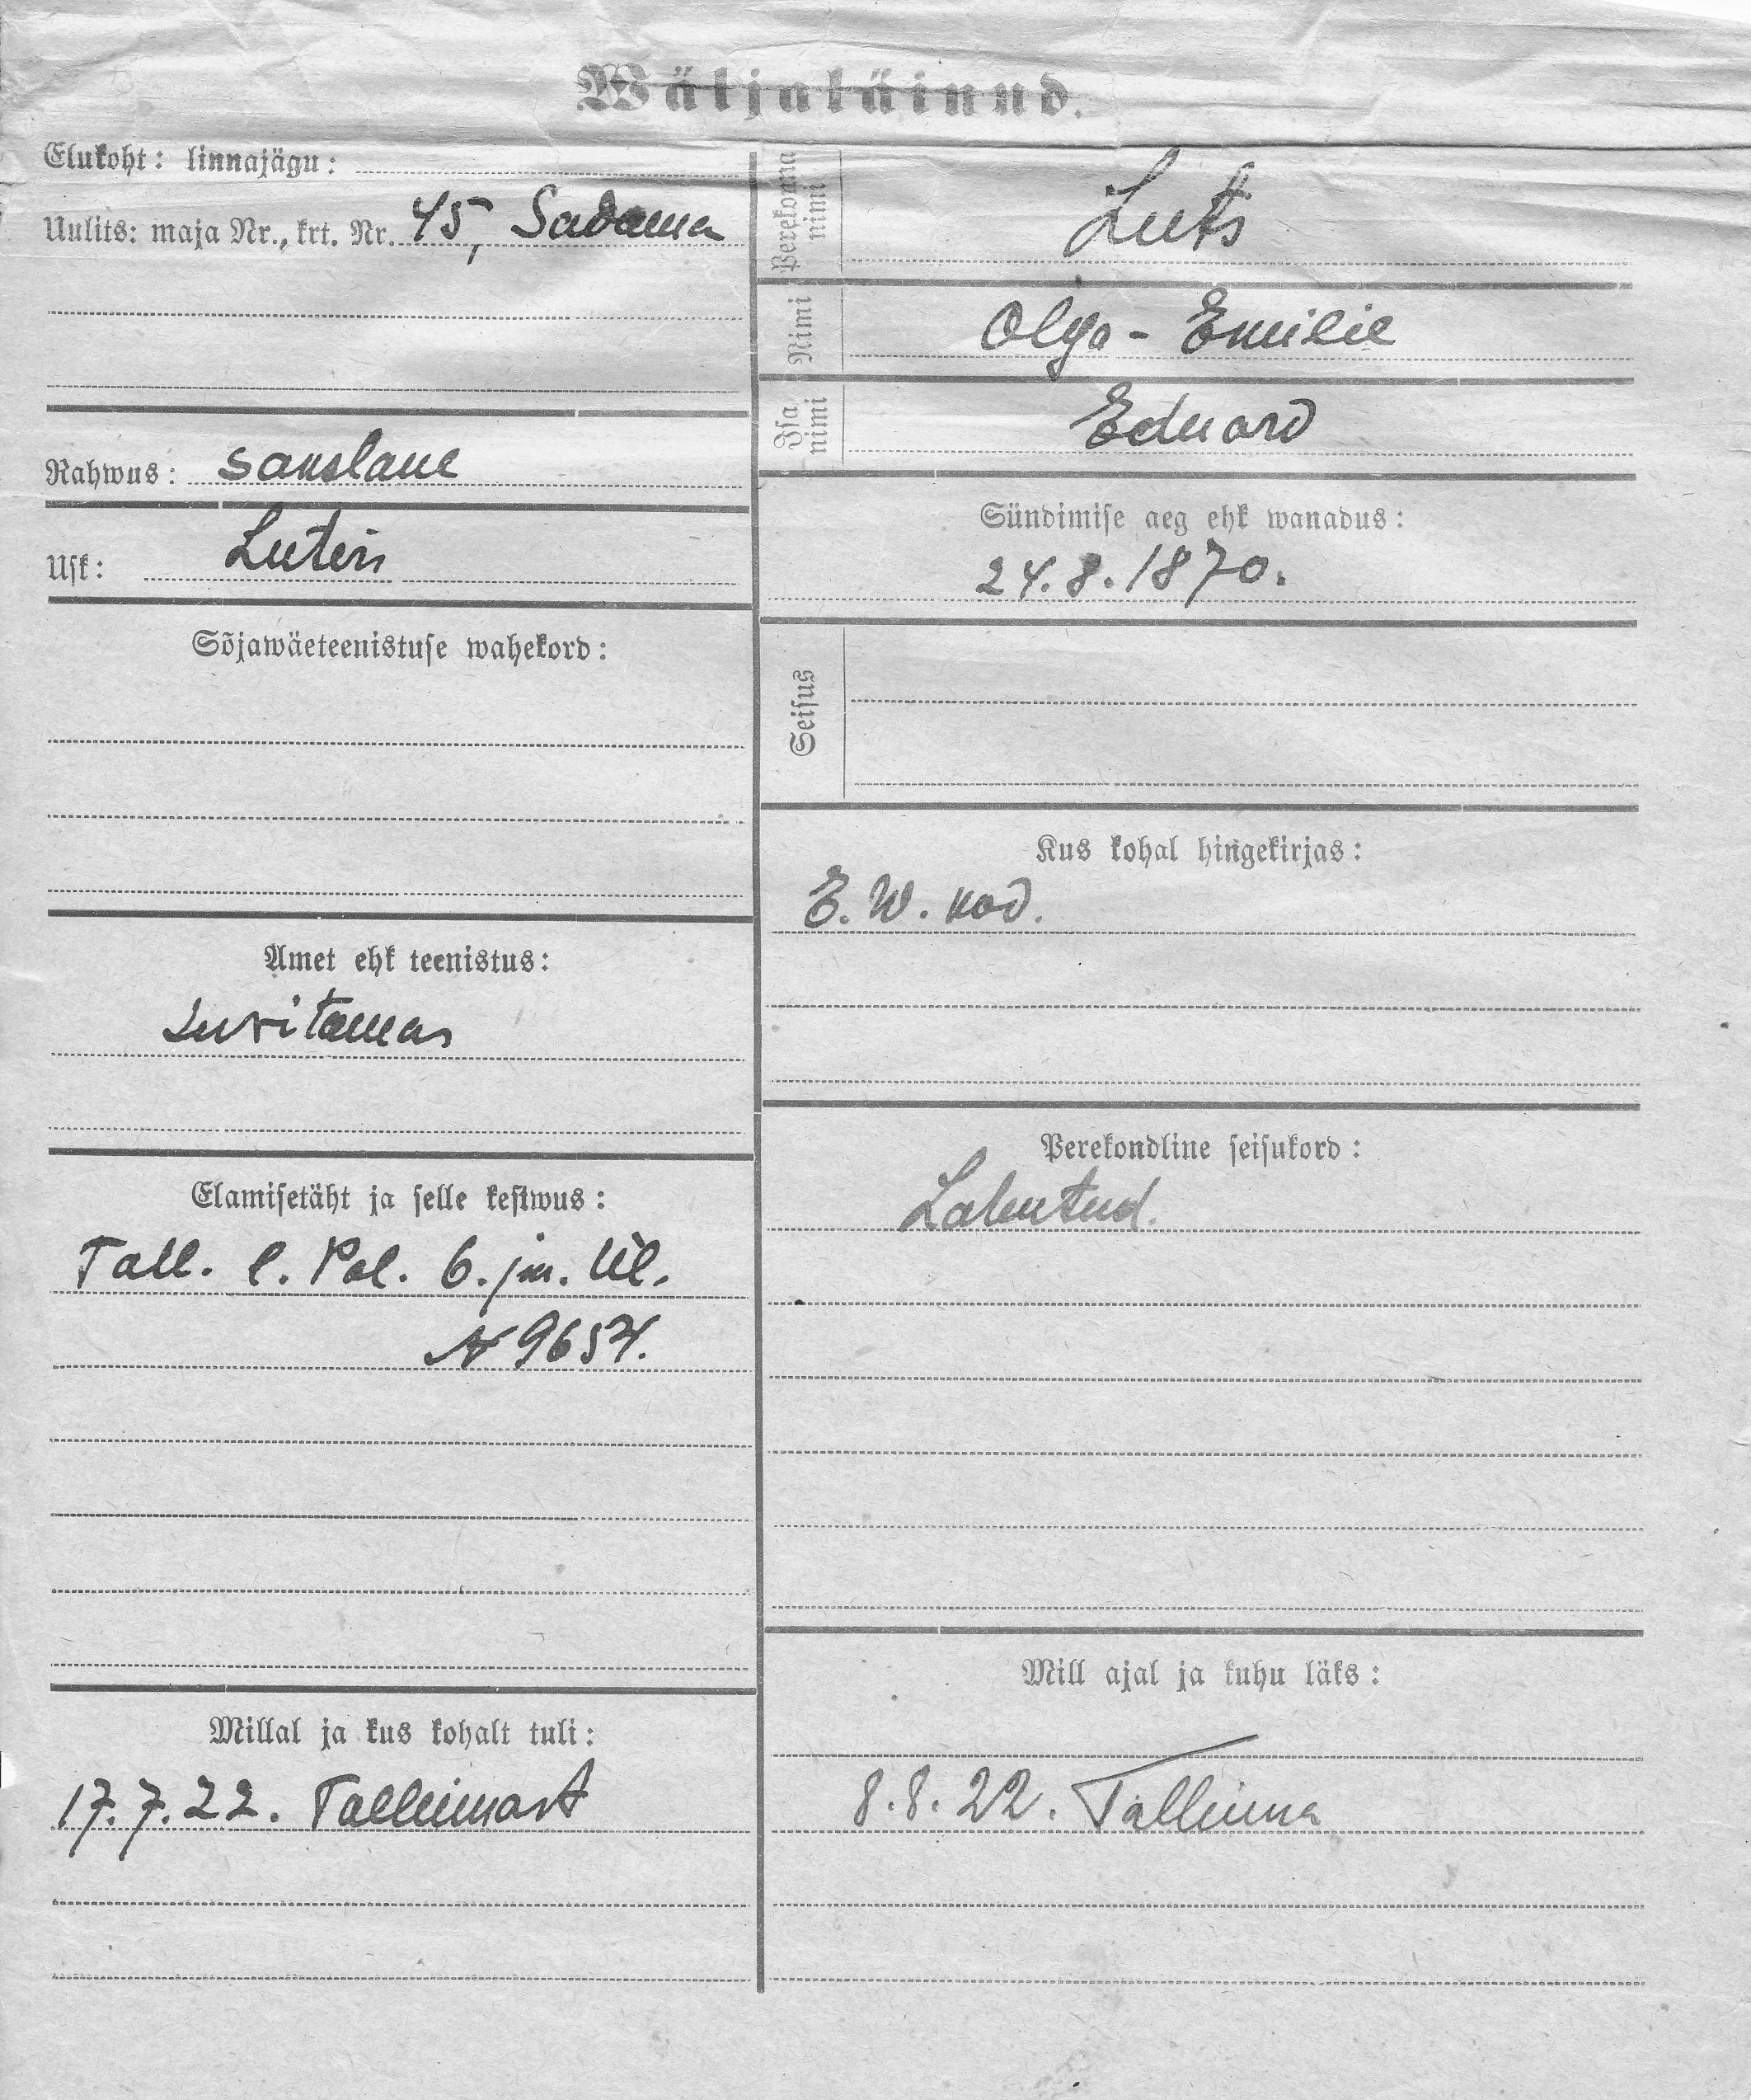 Wäljaläinud.
Elukoht: linnajägu:
Uulits: maja Nr., krt. Nr. 45, Sadama
Rahwus: sakslane
Usk: Luteri
Sõjawäeteenistuse wahekord:
Amet ehk teenistus:
Suvitamas
Elamisetäht ja selle kestwus:
Tall. l. Pol. 6. jsk. ül.
N 9654.
Millal ja kus kohalt tuli:
17.7.22. Tallinnast
Perekonna nimi
Luts
Nimi
Olga-Emilie
Isa nimi
Eduard
Sündimise aeg ehk wanadus:
24.8.1870.
Seisus
Kus kohal hingekirjas:
E. W. kod.
Perekondline seisukord:
Lahutud.
Mill ajal ja kuhu läks:
8.8.22. Tallinna